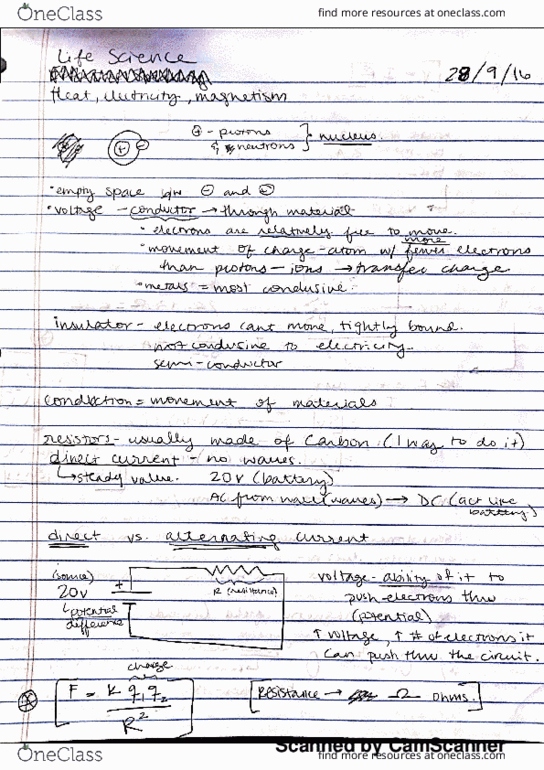 OneClass
find more resources at oneclass.com
Life Science
28/9/16
Heat, electricity, magnetism
⊕ - protons
& neutrons } nucleus.
• empty space b/w ⊖ and ⊕
• voltage - conductor → through material
• electrons are relatively free to move.
• movement of charge - atom w/ fewer more electrons
than protons - ions → transfer charge
• metals = most condusive.
insulator - electrons cant move, tightly bound.
not condusive to electricity.
semi-conductor
conduction = movement of materials
resistors - usually made of Carbon (1 way to do it)
direct current - no waves.
↳ steady value. 20V (battery)
AC from wall (waves) → DC (act like
battery)
direct vs. alternating current
(source)
20V
↳ potential
difference
+
R (resistance)
voltage - ability of it to
push electrons thru
(potential)
↑ voltage, ↑ # of electrons it
can push thru the circuit.
charge
F = K q₁q₂
R²
[Resistance → Ω Ohms.]
Scanned by CamScanner
OneClass
find more resources at oneclass.com